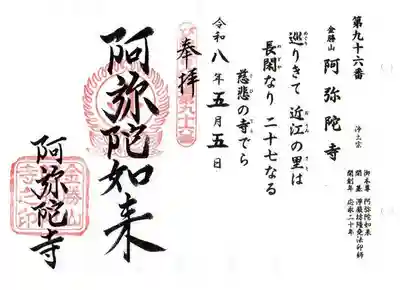 第九十六番
金勝山 阿弥陀寺
浄土宗
御本尊 阿弥陀如来
開基 浄厳坊隆尭法印
開創年 応永二十年
巡りきて 近江の里は
長閑なり 二十七なる
慈悲の寺でら
令和八年五月五日
奉拝
第九十六番
阿弥陀如来
阿弥陀寺
金勝山